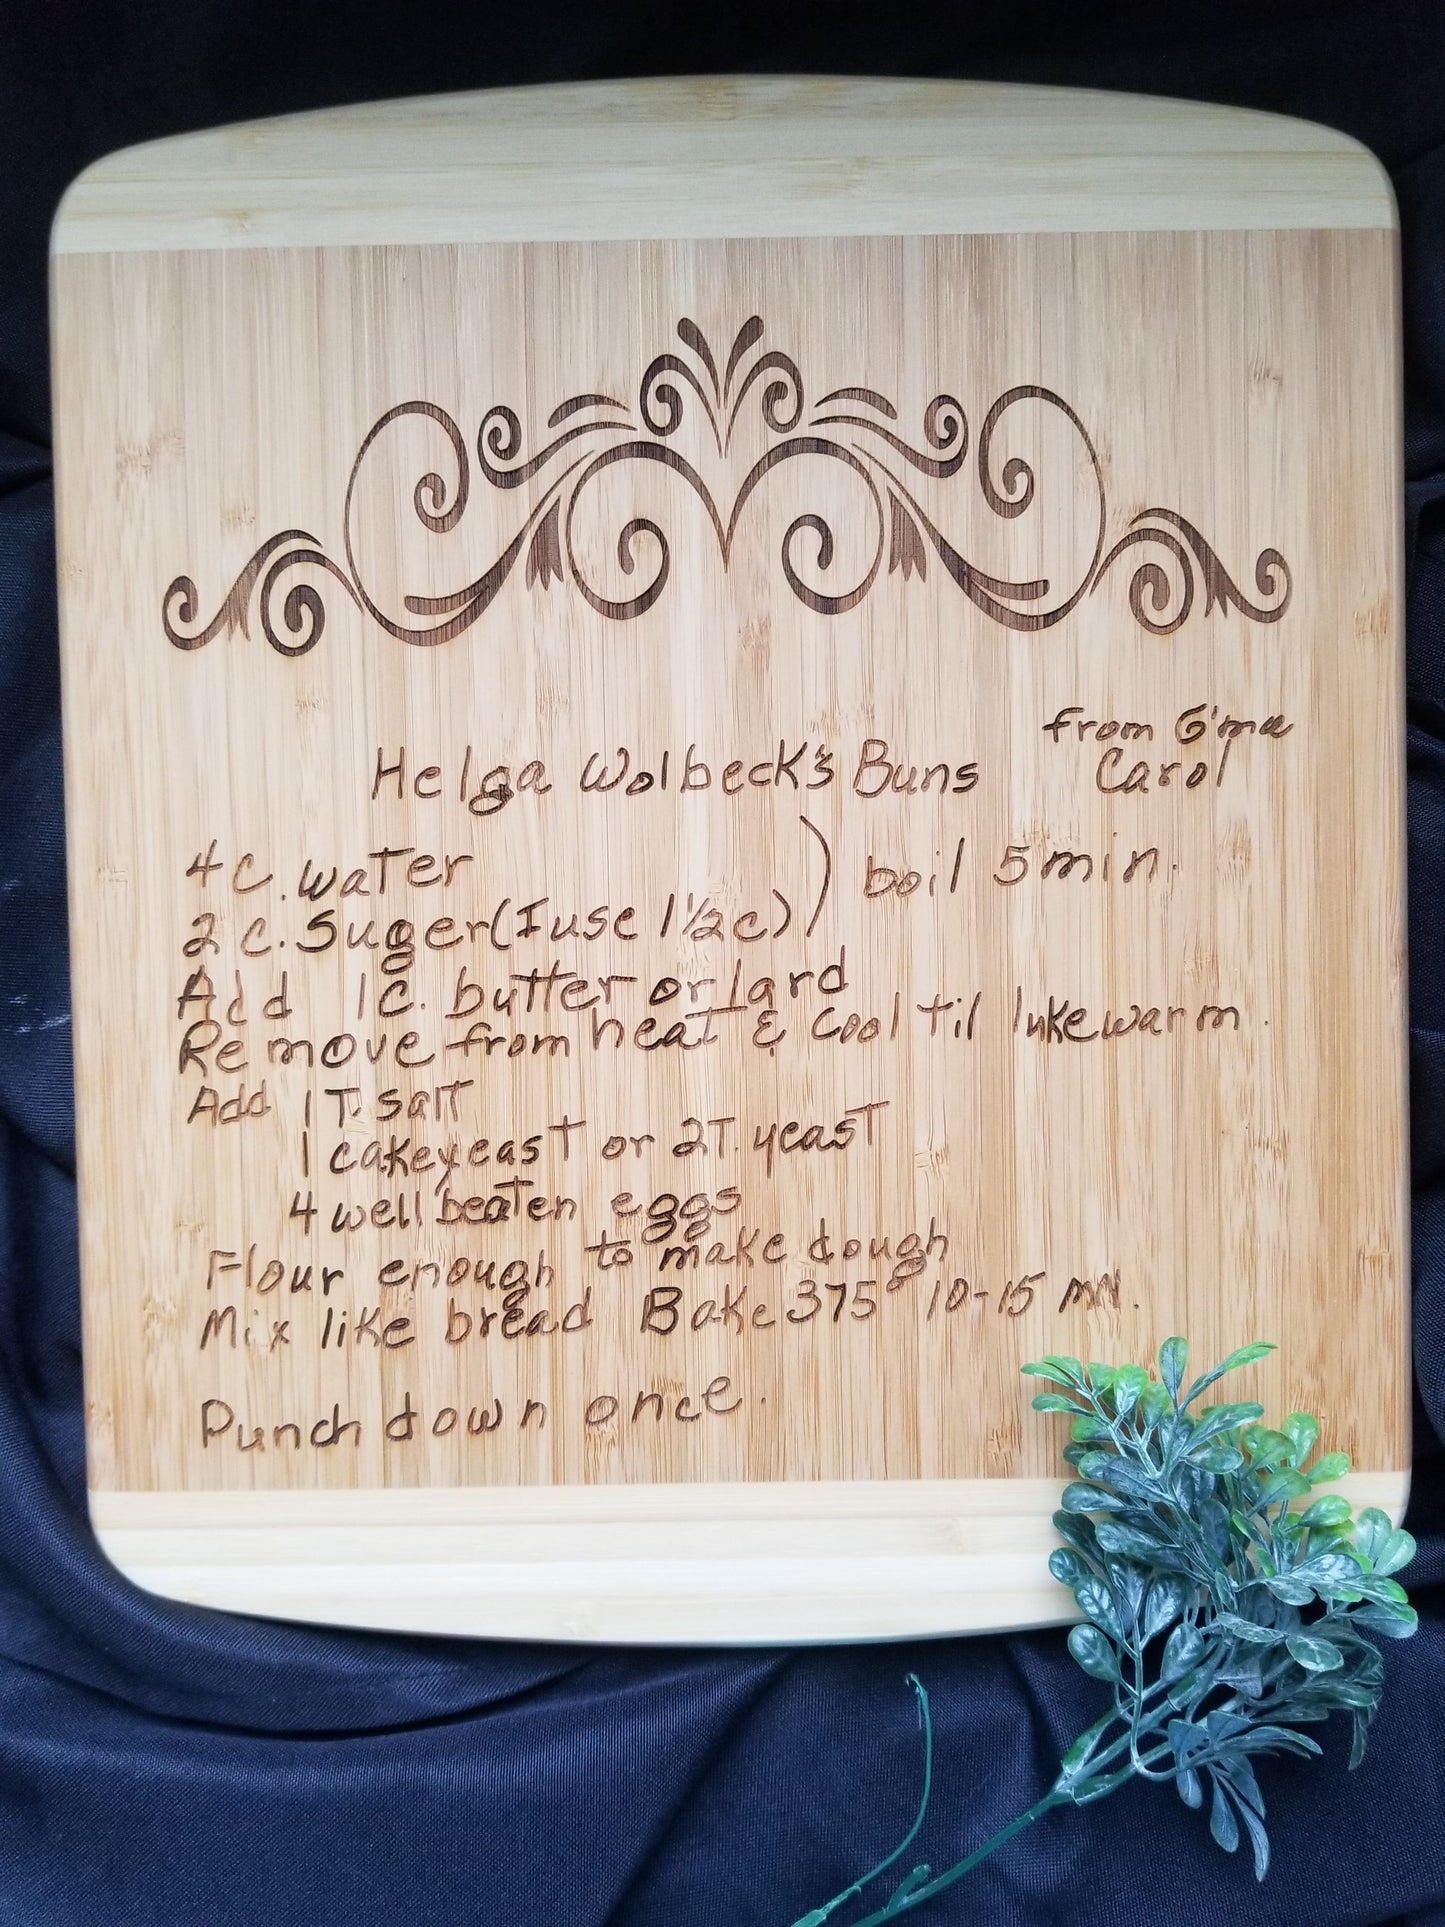 from G'ma
Carol
Helga Wolbeck's Buns
4 c. water
2 c. Suger (I use 1 1/2 c) ) boil 5 min.
Add 1 c. butter or lard
Remove from heat & cool til lukewarm.
Add 1 T. salt
1 cake yeast or 2 T. yeast
4 well beaten eggs
Flour enough to make dough
Mix like bread Bake 375° 10-15 MIN.
Punch down once.